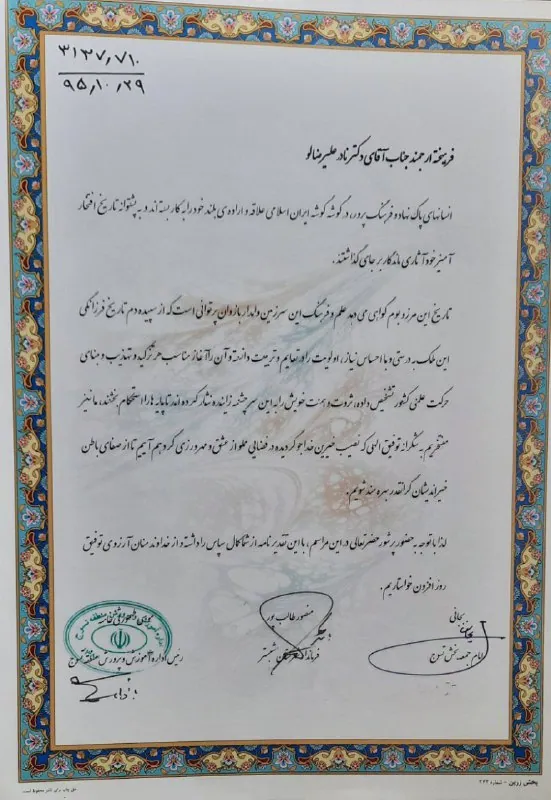 ۳۱۳۷٫۷۱۰
۹۵٫۱۰٫۲۹
فرهیخته ارجمند جناب آقای دکتر نادر علیرضالو
انسانهای پاک نهاد و فرهنگ پرور، در گوشه گوشه ایران اسلامی علاقه و اراده ی بلند خود را به کار بسته اند و به پشتوانه تاریخ افتخار
آمیز خود آثاری ماندگار بر جای گذاشتند.
تاریخ این مرز و بوم گواهی می دهد علم و فرهنگ این سرزمین وامدار بازوان پرتوانی است که از سپیده دم تاریخ فرزانگی
این ملک به درستی و با احساس نیاز، اولویت را در تعلیم و تربیت دانسته و آن را آغاز مناسب هر تزکیه و تهذیب و منای
حرکت علمی کشور تشخیص داده، ثروت و همت خویش را به این سرچشمه زاینده نثار کرده اند تا پایه ها را استحکام بخشند، ما نیز
مفتخریم به شکرانه توفیق الهی که نصیب خیرین خداجو گردیده در فضایی مملو از عشق و مهرورزی گرد هم آییم تا از صفای باطن
خیراندیشان گرانقدر بهره مند شویم.
لذا با توجه به حضور پرشور حضرتعالی در این مراسم، با این تقدیرنامه از شما کمال سپاس را داشته و از خداوند منان آرزوی توفیق
روز افزون خواستاریم.
منصور طالب پور
فرماندار شهرستان شبستر
امام جمعه بخش تسوج
رئیس اداره آموزش و پرورش منطقه تسوج
پخش زرین - شماره ۲۷۳
حق چاپ برای ناشر محفوظ است